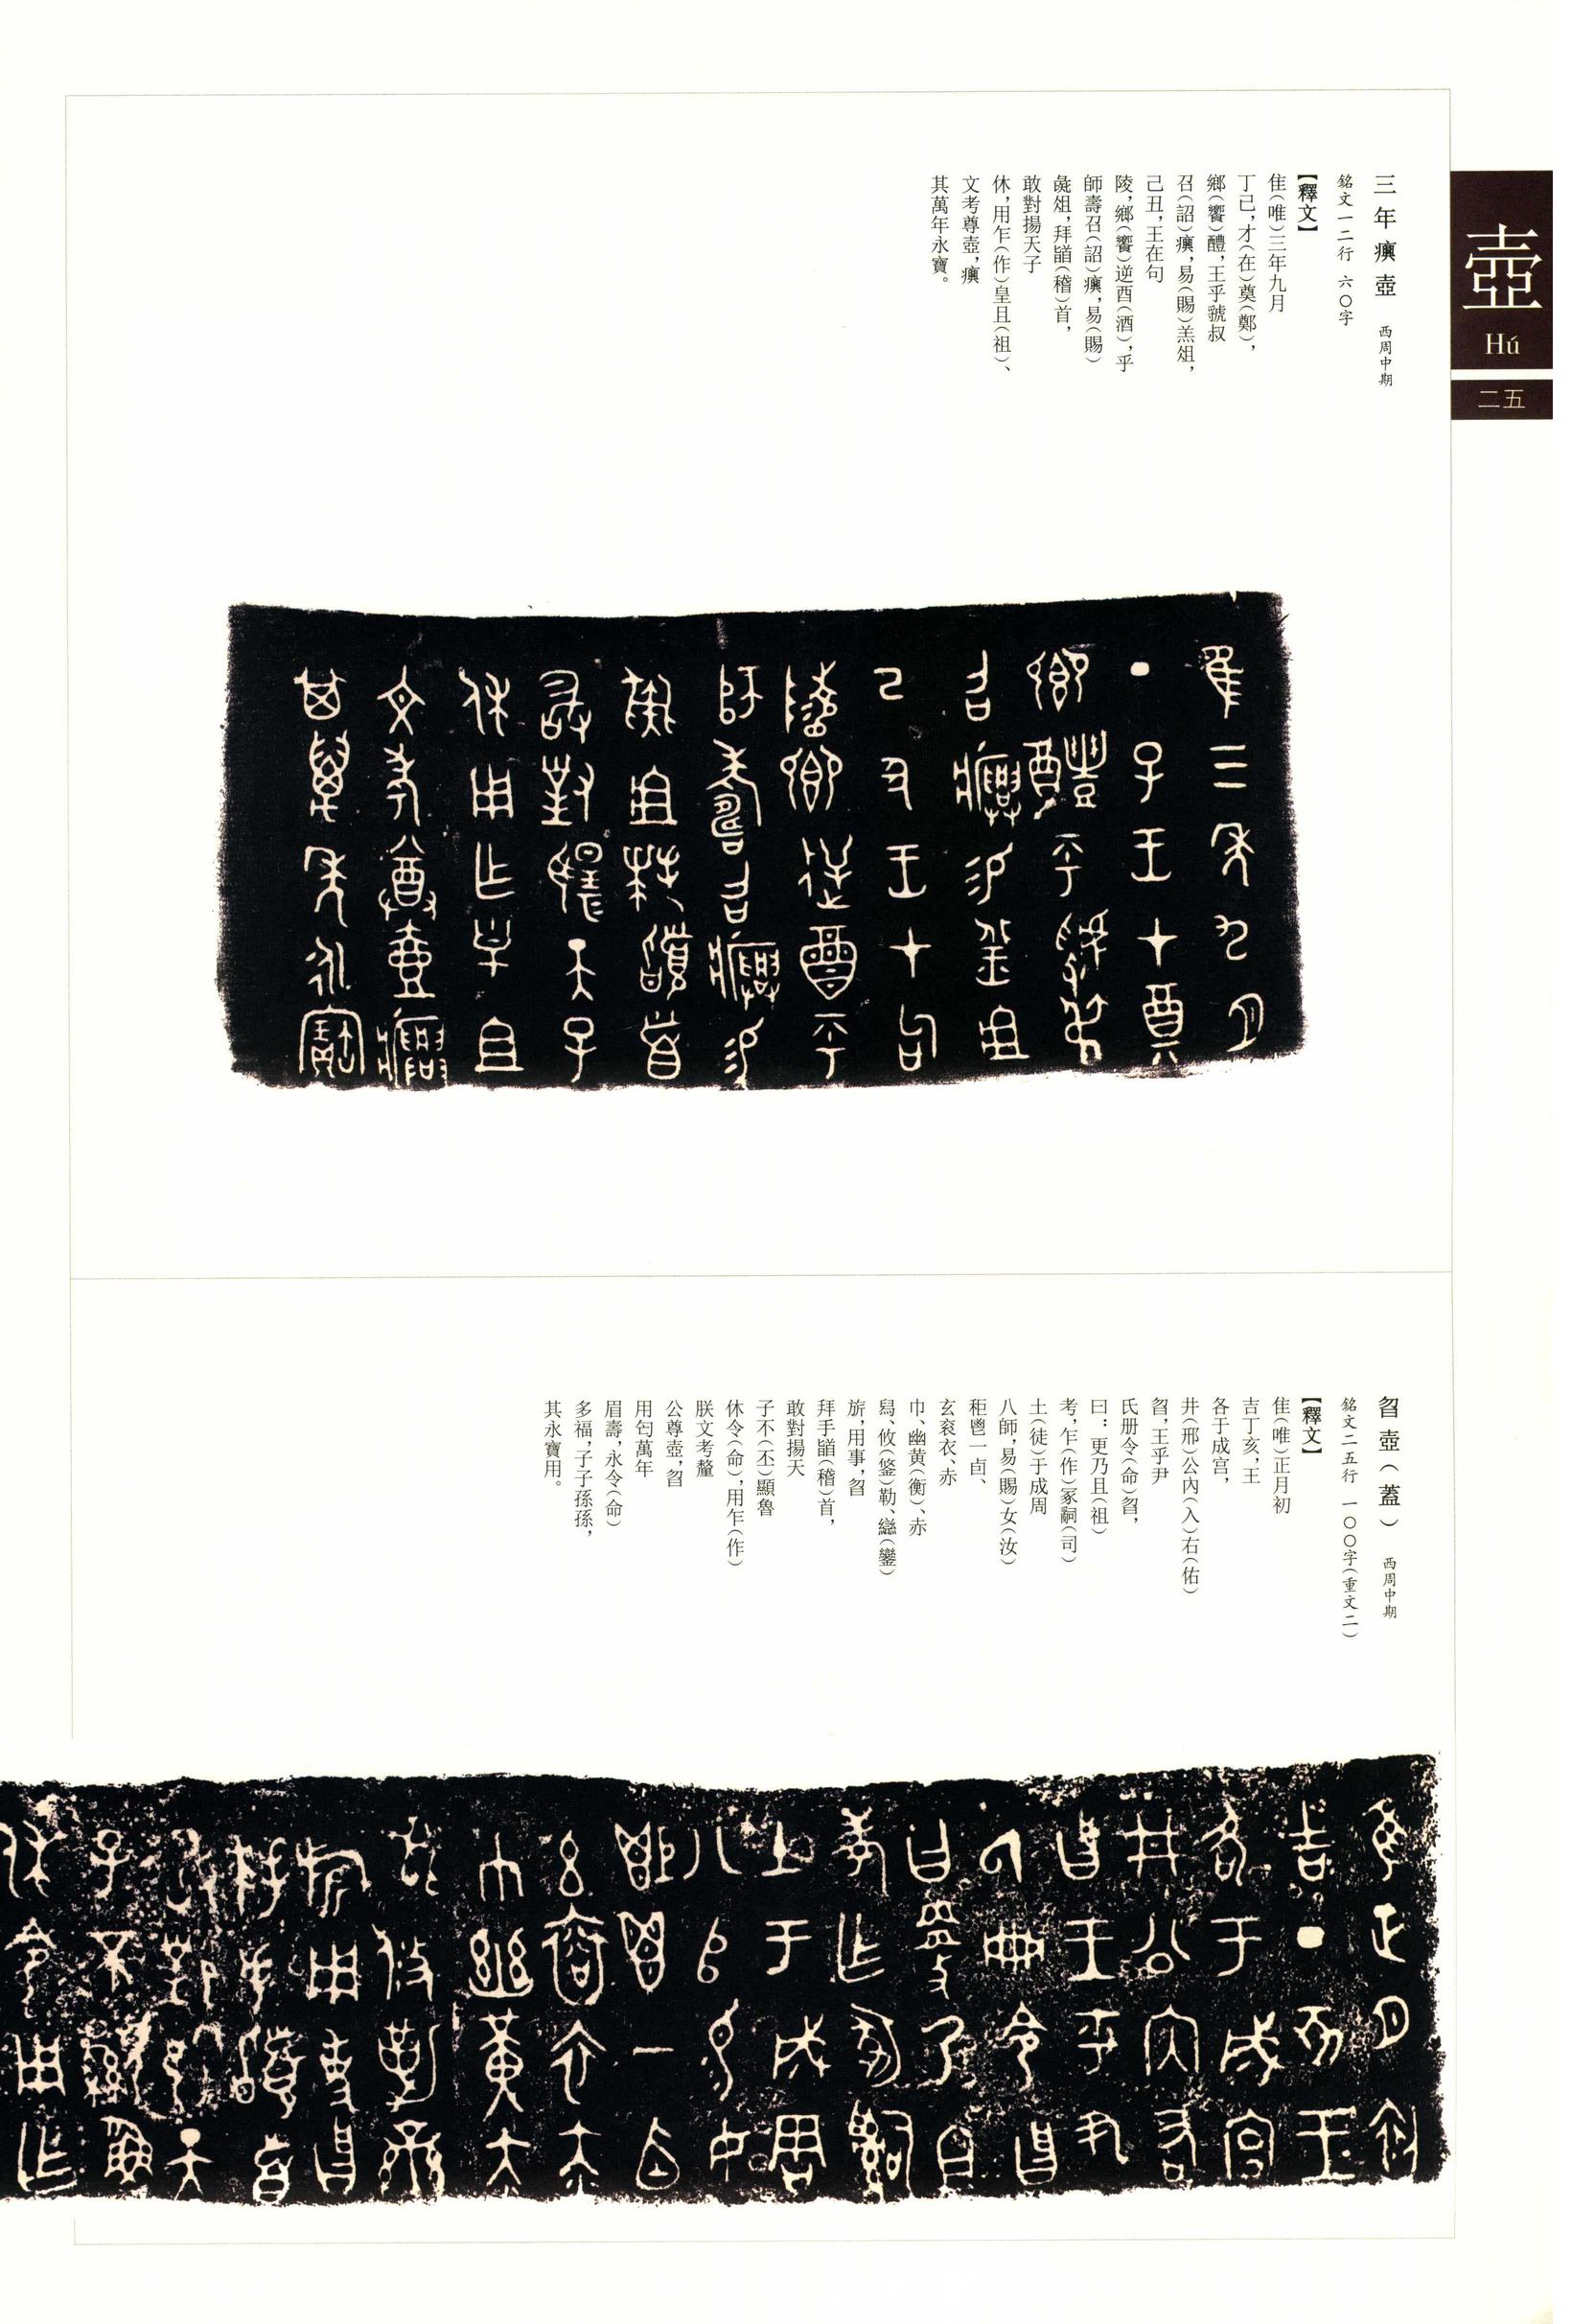 壺
Hú
二五
三年𤼈壺 西周中期
銘文一二行 六〇字
【釋文】
隹(唯)三年九月
丁巳,才(在)奠(鄭),
鄉(饗)醴,王乎虢叔
召(詔)𤼈,易(賜)羔俎,
己丑,王在句
陵,鄉(饗)逆酉(酒),乎
師壽召(詔)𤼈,易(賜)
彘俎,拜𩒨(稽)首,
敢對揚天子
休,用乍(作)皇且(祖)、
文考尊壺,𤼈
其萬年永寶。
曶壺(蓋) 西周中期
銘文二五行 一〇〇字(重文二)
【釋文】
隹(唯)正月初
吉丁亥,王
各于成宫,
井(邢)公內(入)右(佑)
曶,王乎尹
氏册令(命)曶,
曰:更乃且(祖)
考,乍(作)冢嗣(司)
土(徒)于成周
八師,易(賜)女(汝)
秬鬯一卣、
玄袞衣、赤
巾、幽黄(衡)、赤
舄、攸(鋚)勒、䜌(鑾)
旂,用事,曶
拜手𩒨(稽)首,
敢對揚天
子不(丕)顯魯
休令(命),用乍(作)
朕文考釐
公尊壺,曶
用匄萬年
眉壽,永令(命)
多福,子子孫孫,
其永寶用。